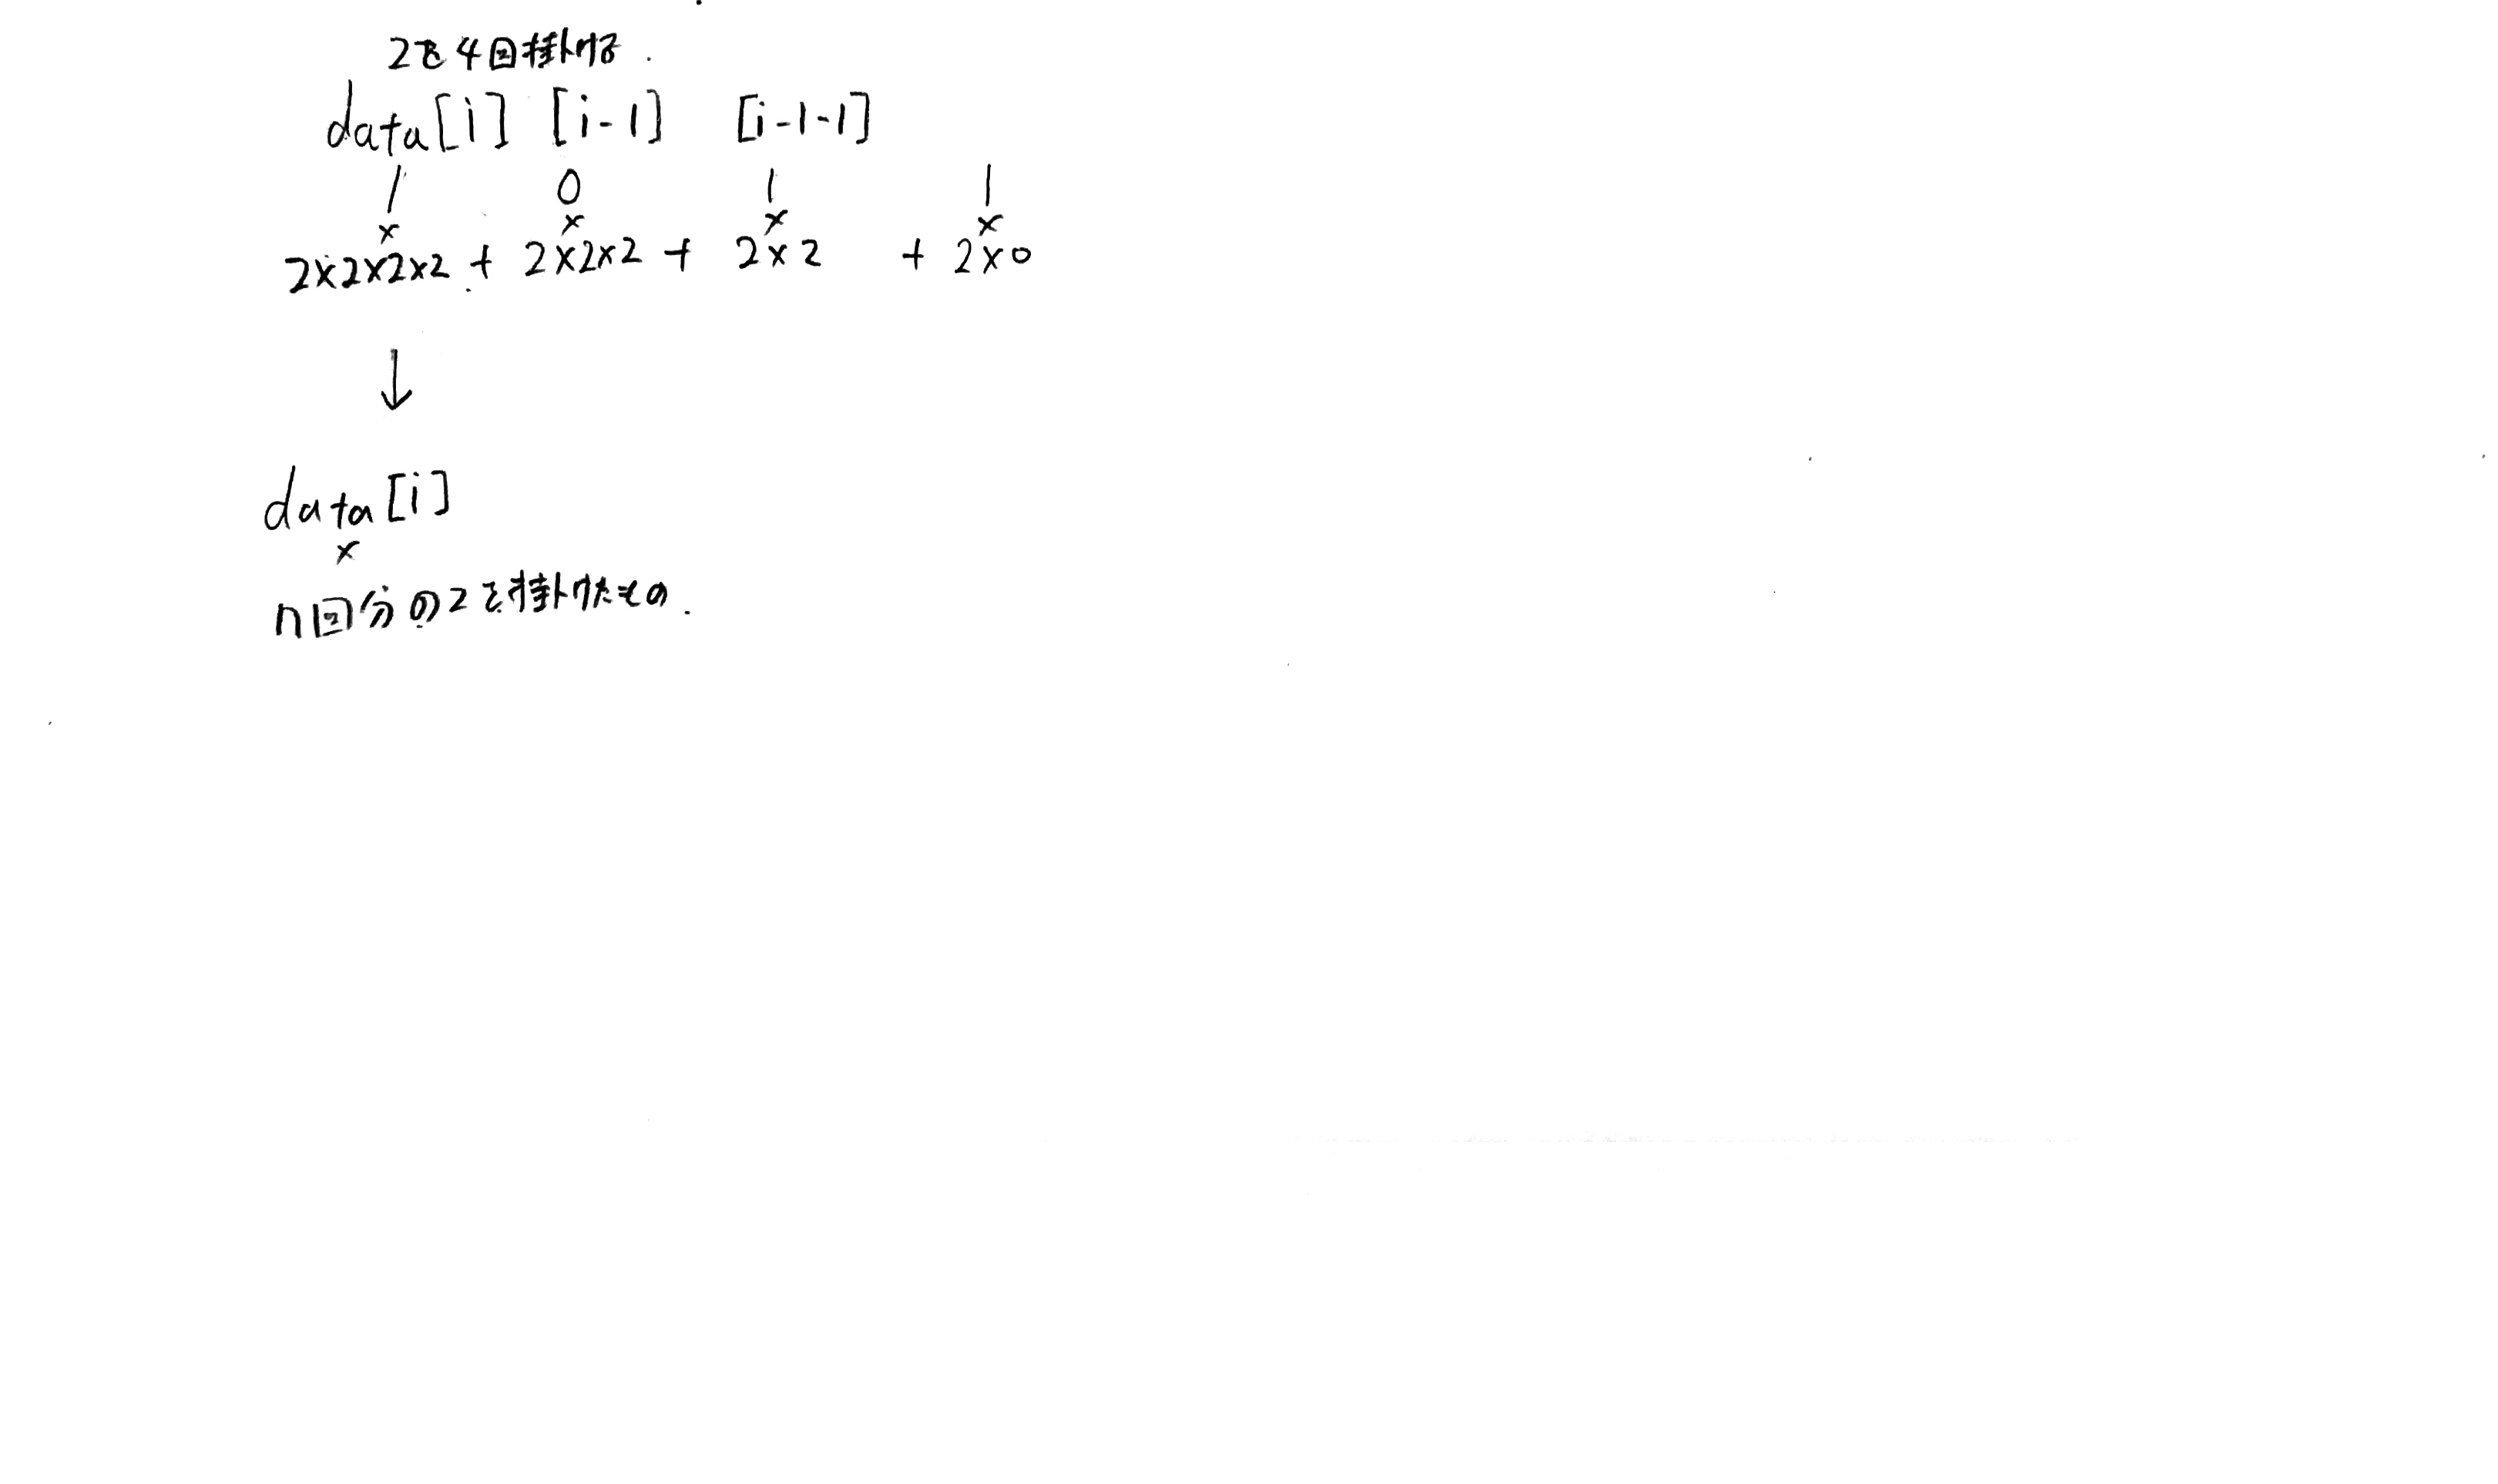 2を4回掛ける.
data[i] [i-1] [i-1-1]
1 0 1 1
× × × ×
2×2×2×2 + 2×2×2 + 2×2 + 2×0
↓
data[i]
×
n回分の2を掛けたもの.